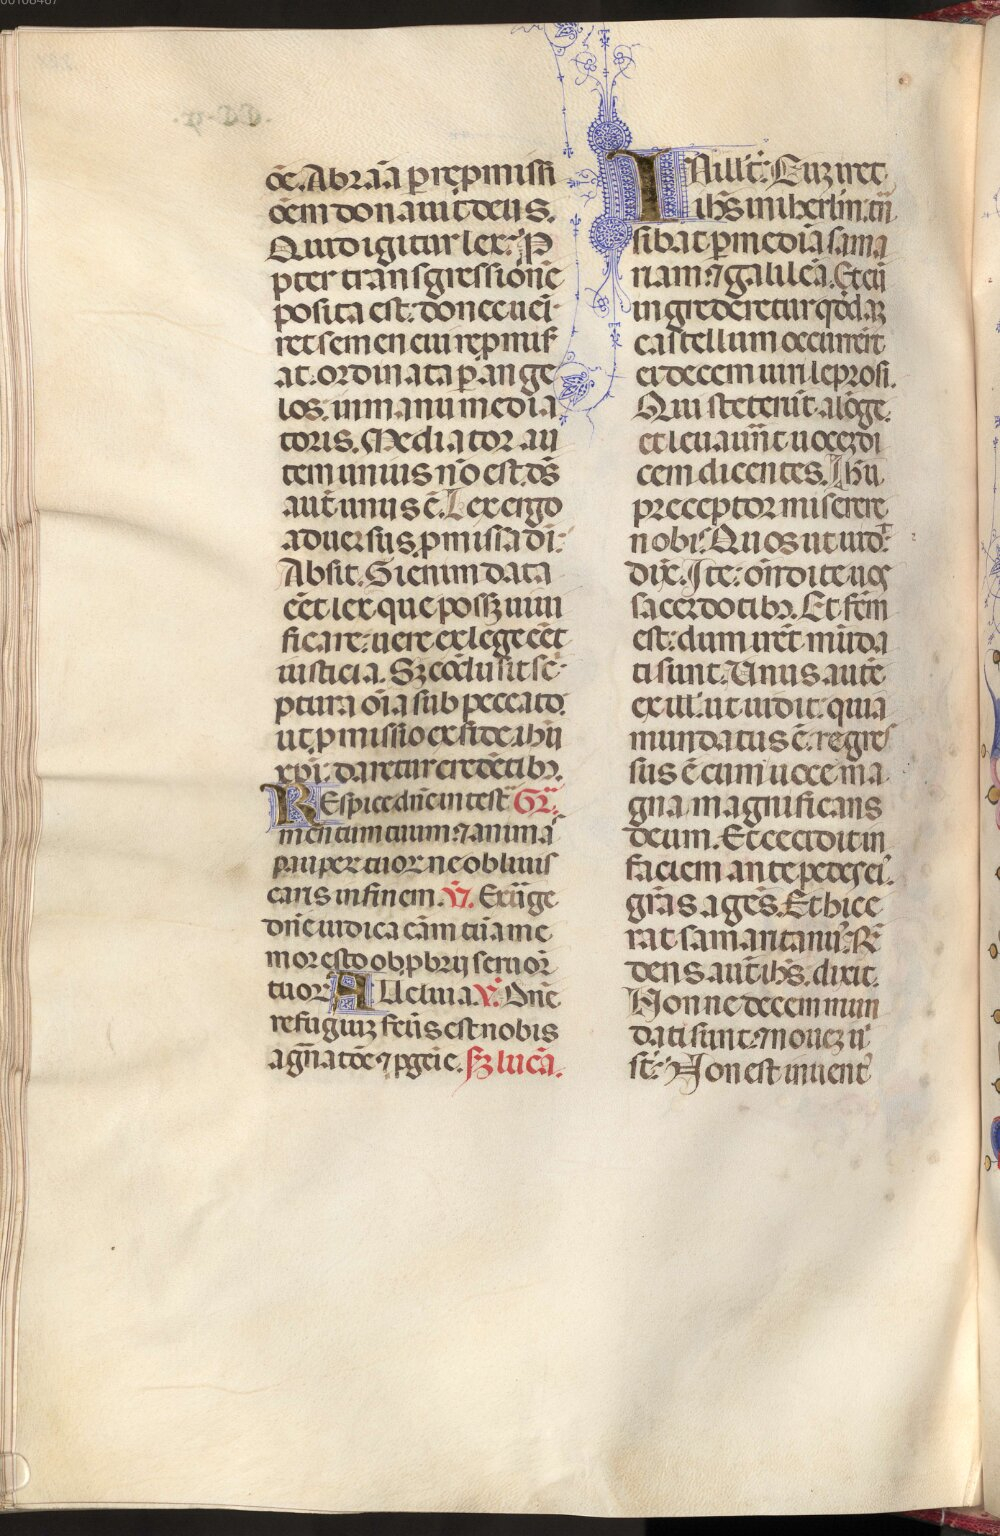 õe. Abraã ꝑ repmissi
õem donauit deus.
Quid igitur lex? P
pter transgressionẽ
posita est: donec uei
ret semen cui repmis
at. ordinata ꝑ ange
los. in manu media
toris. Mediator au
tem unius nõ est. dš
aut̃ unus ẽ. Lex ergo
aduersus ꝓmissa di:
Absit. Si enim data
eẽt lex que possꝫ uiui
ficare: uere ex lege eẽt
iusticia. Sꝫ cõclusit sc̃
ptura oĩa sub peccato.
ut ꝓmissio ex fide ihũ
xp̃i: daretur credẽtibꝫ.
REspice dñe in test Gr̃.
mentum tuum ⁊ anima
pauper tuoꝝ ne obliuis
caris in finem. V̾. Exũge
dñe iudica cãm tuã me
mor esto obꝓbrij seruoꝝ
tuoꝝ ALleluia. V̾. Dñe
refugiuꝫ feũs est nobis
a gñatõe ⁊ ꝓgeie. Sꝫ lucã.
IN ill̃ t̃: Cuꝫ iret
ihs̃ in iherl̃m. trã
sibat ꝑ mediã sama
riam ⁊ galileã. Et cũ
ingrederetur qõdaꝫ
castellum occurrẽt
ei decem uiri leprosi.
Qui steterũt alõge.
et leuaũnt uoceꝫ di
cem dicentes. Ihũ
preceptor miserere
nobis. Quos ut uid̾
dix̃. Ite: oñdite uos
sacerdotibꝫ. Et fc̃m
est: dum irẽt mũda
ti sunt. Unus autẽ
ex ill. ut uidit: quia
mundatus ẽ: regres
sus ẽ cum uoce ma
gna magnificans
deum. Et cecidit in
faciem ante pedes ei.
grãs agẽs. Et hic e
rat samaritanus. R̃
dens aut̃ ihs̃. dixit.
Nonne decem mun
dati sunt: ⁊ nouem u
st̃: Non est inuent